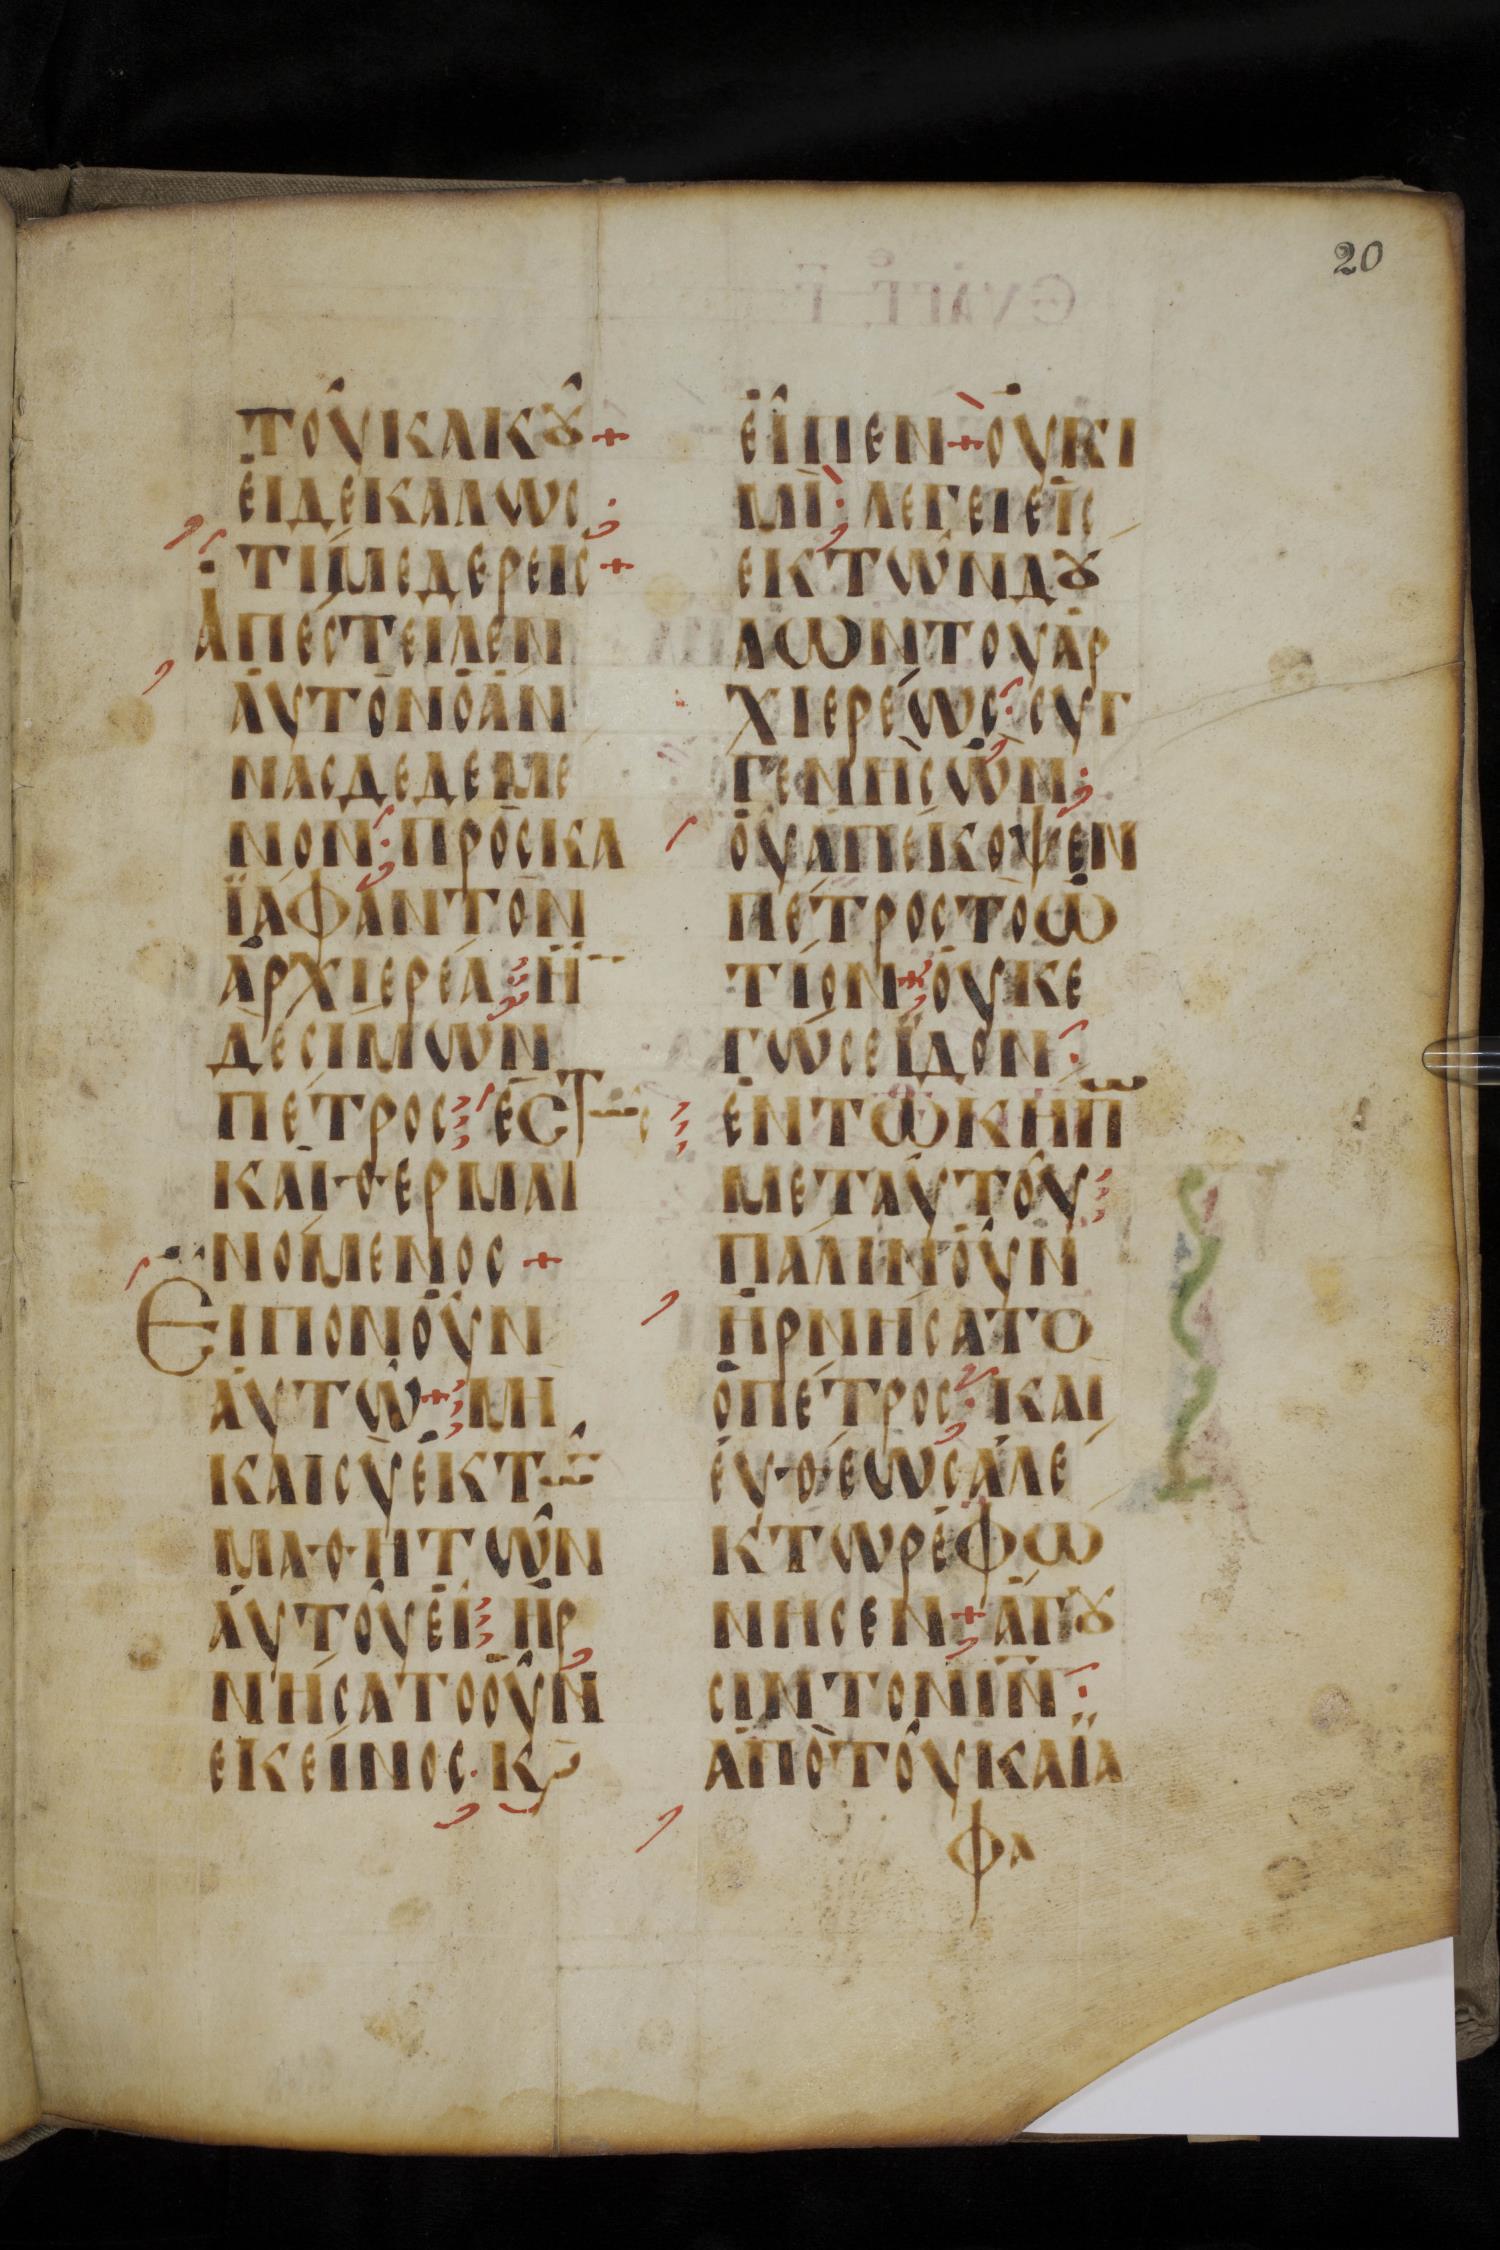 20
ΤΟΥΚΑΚȢ+
ΕΙΔΕΚΑΛΩϹ
ΤΙΜΕΔΕΡΕΙϹ+
ΑΠΕϹΤΕΙΛΕΝ
ΑΥΤΟΝΟΑΝ
ΝΑϹΔΕΔΕΜΕ
ΝΟΝ· ΠΡΟϹΚΑ
ΪΑΦΑΝΤΟΝ
ΑΡΧΙΕΡΕΑ· Η̄
ΔΕϹΙΜΩΝ
ΠΕΤΡΟϹ ΕϹΤωϹ
ΚΑΙΘΕΡΜΑΙ
ΝΟΜΕΝΟϹ+
ΕΙΠΟΝΟΥΝ
ΑΥΤΩ+ ΜΗ
ΚΑΙϹΥΕΚΤω̄
ΜΑΘΗΤΩΝ
ΑΥΤΟΥΕΪ· ΗΡ
ΝΗϹΑΤΟΟΥΝ
ΕΚΕΙΝΟϹ· Κϗ
ΕΙΠΕΝ+ΟΥΚΙ
ΜΙ· ΛΕΓΕΙΕΙϹ
ΕΚΤΩΝΔȢ
ΛΩΝΤΟΥΑΡ
ΧΙΕΡΕΩϹ· ϹΥΓ
ΓΕΝΗϹΩΝ·
ΟΥΑΠΕΚΟΨΕΝ
ΠΕΤΡΟϹΤΟΩ
ΤΙΟΝ+ΟΥΚΕ
ΓΩϹΕΪΔΟΝ·
ΕΝΤΩΚΗΠω
ΜΕΤΑΥΤΟΥ
ΠΑΛΙΝΟΥΝ
ΗΡΝΗϹΑΤΟ
ΟΠΕΤΡΟϹ· ΚΑΙ
ΕΥΘΕΩϹΑΛΕ
ΚΤΩΡΕΦΩ
ΝΗϹΕΝ+ΑΓȢ
ϹΙΝΤΟΝΙΝ̄·
ΑΠΟΤΟΥΚΑΪΑ
ΦΑ